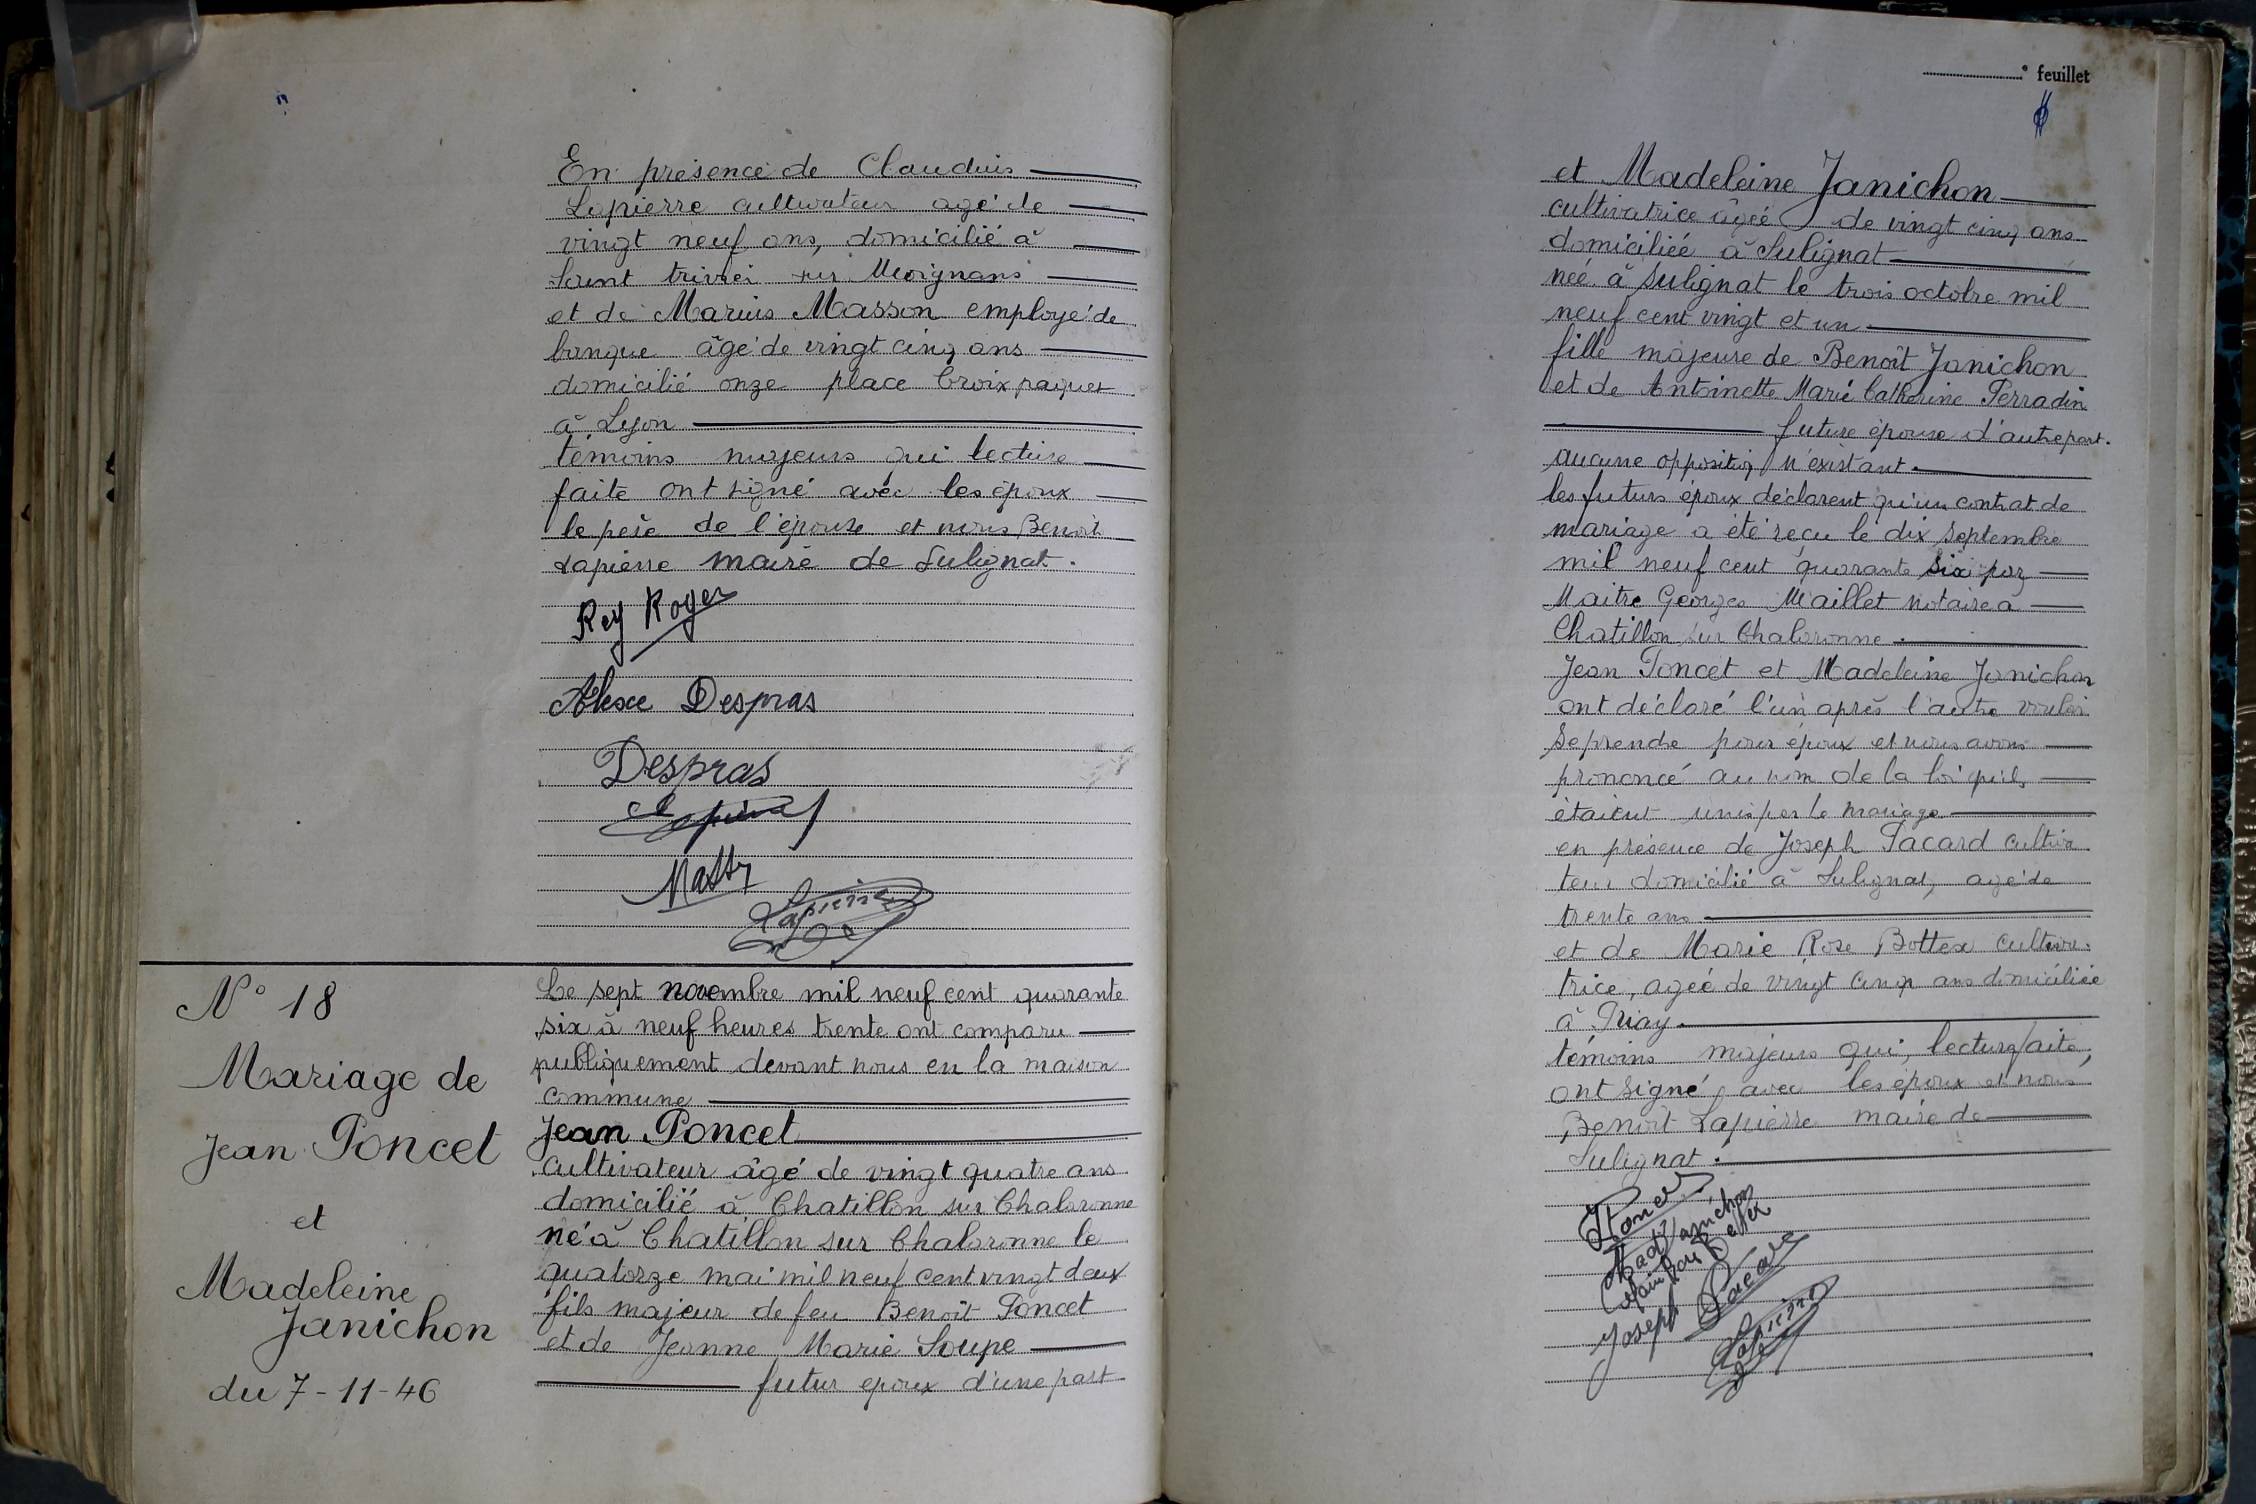 En présence de Claudius
Lapierre cultivateur agé de
vingt neuf ans, domicilié à
Saint trivier sur Moignans
et de Marius Masson employé de
banque âgé de vingt cinq ans
domicilié onze place Croix paquet
à Lyon
témoins majeurs qui lecture
faite ont signé avec les époux
le père de l'épouse et nous Benoît
Lapierre maire de Sulignat.
Rey Roger
Despras
Despras
Lapierre
N° 18
Mariage de
Jean Poncet
et
Madeleine
Janichon
du 7-11-46
Le sept novembre mil neuf cent quarante
six à neuf heures trente ont comparu
publiquement devant nous en la maison
commune
Jean Poncet
cultivateur âgé de vingt quatre ans
domicilié à Chatillon sur Chalaronne
né à Chatillon sur Chalaronne le
quatorze mai mil neuf cent vingt deux
fils majeur de feu Benoît Poncet
et de Jeanne Marie Soupe
futur epoux d'une part
° feuillet
et Madeleine Janichon
cultivatrice âgée de vingt cinq ans
domiciliée à Sulignat
née à Sulignat le trois octobre mil
neuf cent vingt et un
fille majeure de Benoît Janichon
et de Antoinette Marie Catherine Perradin
future épouse d'autre part.
aucune opposition n'existant.
les futurs époux déclarent qu'un contrat de
mariage a été reçu le dix septembre
mil neuf cent quarante six par
Maitre Georges Maillet notaire à
Chatillon sur Chalaronne.
Jean Poncet et Madeleine Janichon
ont déclaré l'un après l'autre vouloir
se prendre pour époux et nous avons
prononcé au nom de la loi qu'ils
étaient unis par le mariage
en présence de Joseph Pacard cultiva
teur domicilié à Sulignat, agé de
trente ans
et de Marie Rose Bottex cultiva
trice, agée de vingt cinq ans domiciliée
à
témoins majeurs qui, lecture faite,
ont signé avec les époux et nous
Benoît Lapierre maire de
Sulignat.
Poncet
Mad Janichon
Joseph Pacard
Lapierre